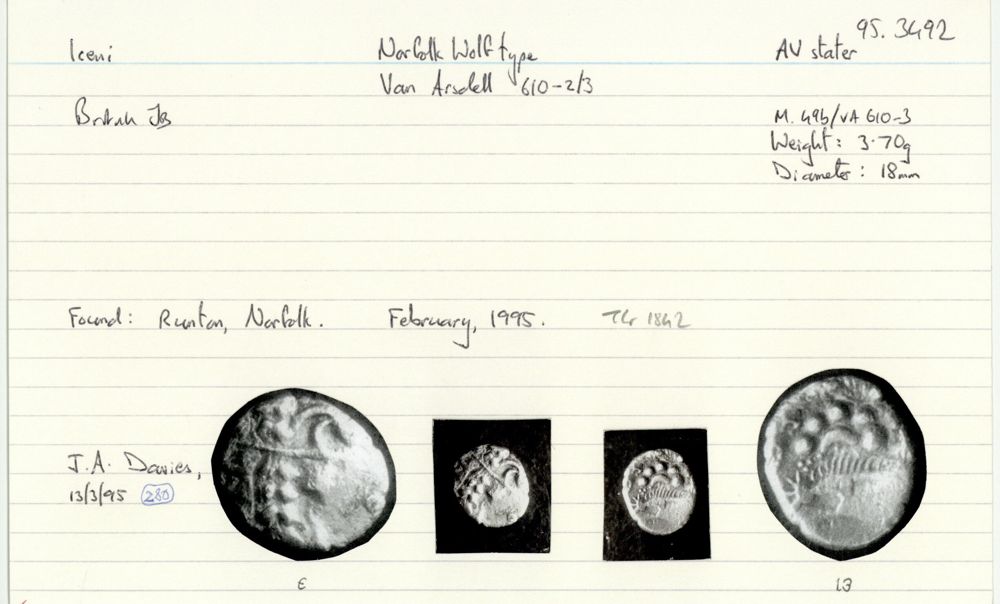 95. 3492
Iceni Norfolk Wolf type AV stater
Van Arsdell 610-2/3
British JB M. 49b/VA 610-3
Weight: 3.70g
Diameter: 18mm
Found: Runton, Norfolk. February, 1995. TG 1842
J.A. Davies,
13/3/95 280